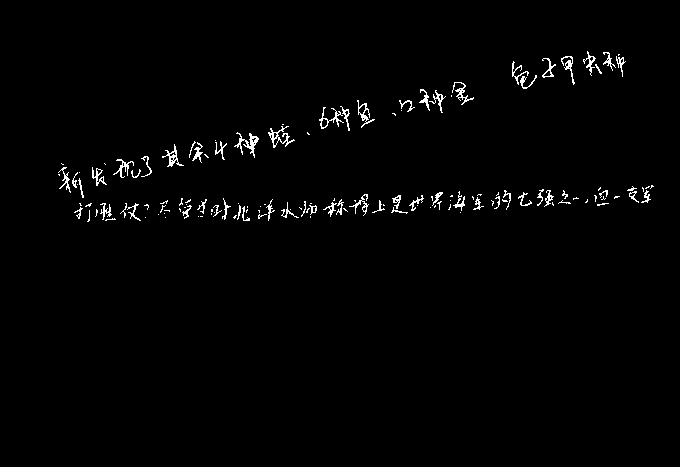 新发现了其余4种蛙、6种鱼、12种金龟子甲虫种
打胜仗?尽管当时北洋水师称得上是世界海军的七强之一,但一支军